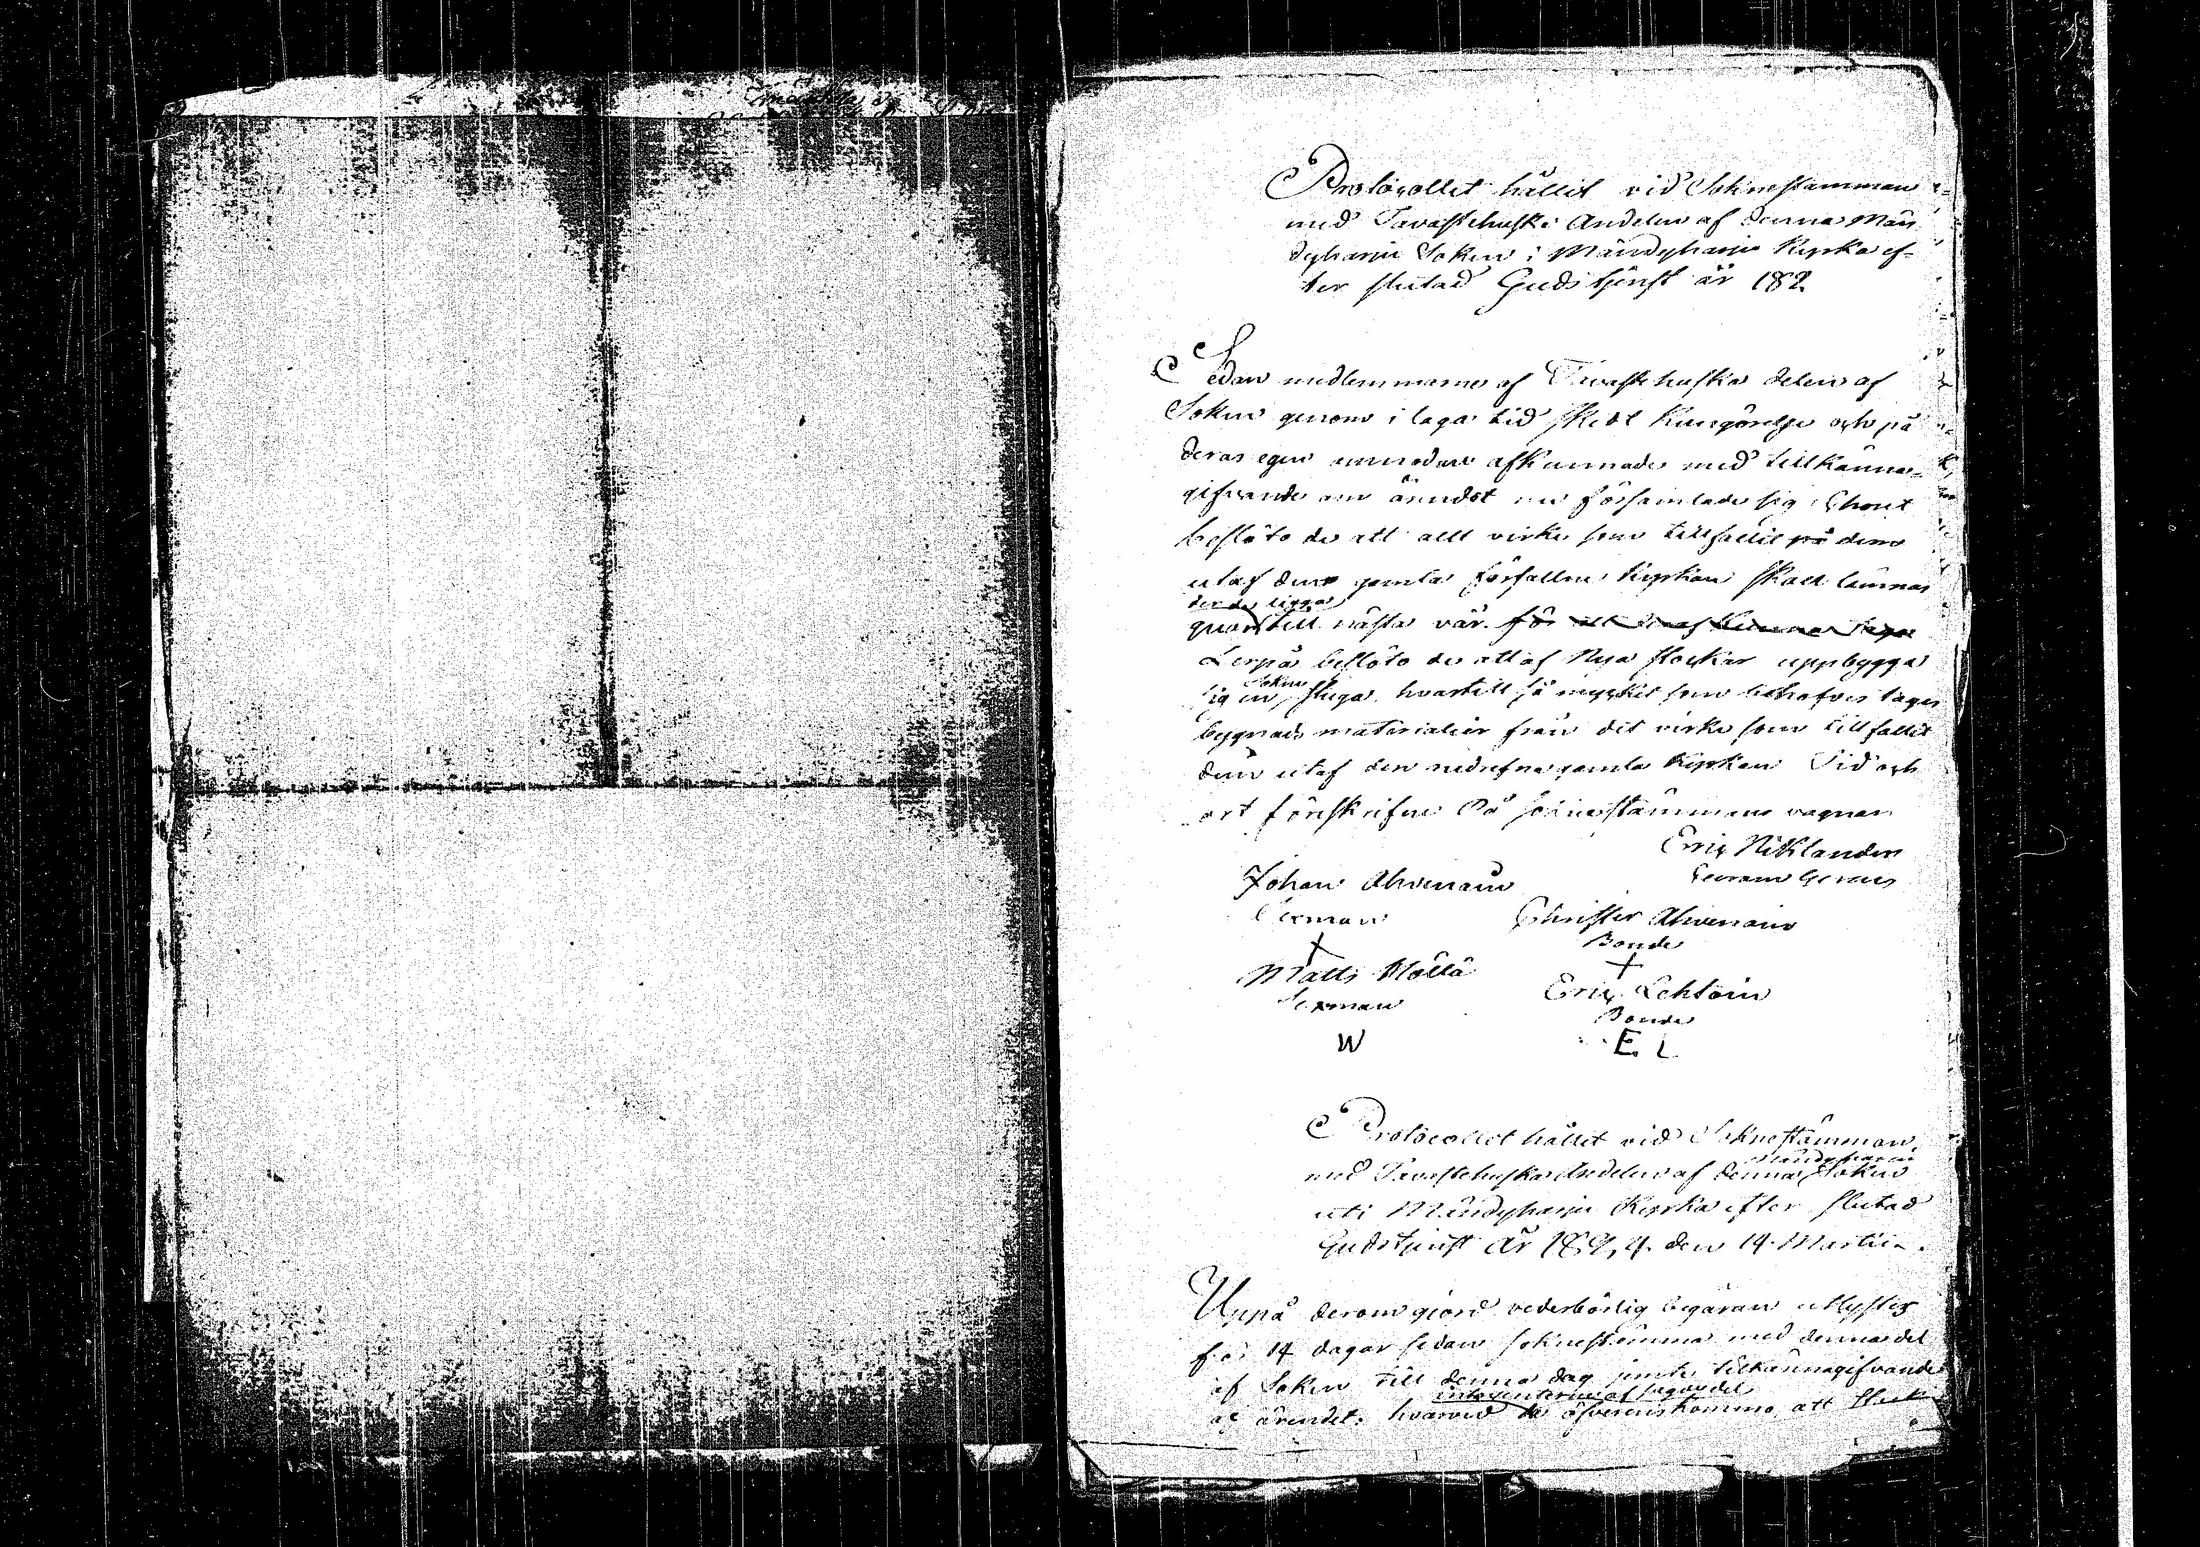 Protocollet hållit vid Soknestamman
med Tavastehuska Andelen af denna Män
dyharju Soken i Mändyharju Kyrka ef-
ter slutad Gudstjenst år 182
Sedan medlemmarne af Tavastehuska delen af
Soken genom i laga tid skedt Kungörelse och på
deras egen afkunnade med tillkänna-
gifvande om ärendet nu församlade sig
beslöto de att allt virke som tillfallit på dem
utaf den gamla förfallne Kyrkan skall lämnas
der de ligga
quar till nästa vår för att
Derpå beslöto de att af Nya stockar uppbygga
Sokne
sig en stuga, hvartill så mycket som behofves tages
bygnads materialier från det virke som tillfallit
dem utaf den nedrefne gamla Kyrkan Tid och
ort förreskrifne På Soknestämmans vagnar
Eric Niklander
Johan Ahvenain
Sexman
Christer Ahvenain
Bonde
Matts Möllä
Sexman
Eric Lehtoin
Bonde
W
E. L
Protocollet hållet vid Soknestämman
Mändyharju
med Tavastehuska Andelen af denna Soken
uti Mändyharju Kyrka efter slutad
Gudstjenst År den 14 Martii
Uppå derom gjord vederbörlig begäran utlystes
för 14 dagar sedan soknestämma med denna del
af Soken till denna dag jemte tilkännagifvande
af ärendet: hvarvid de öfverenskommo, att